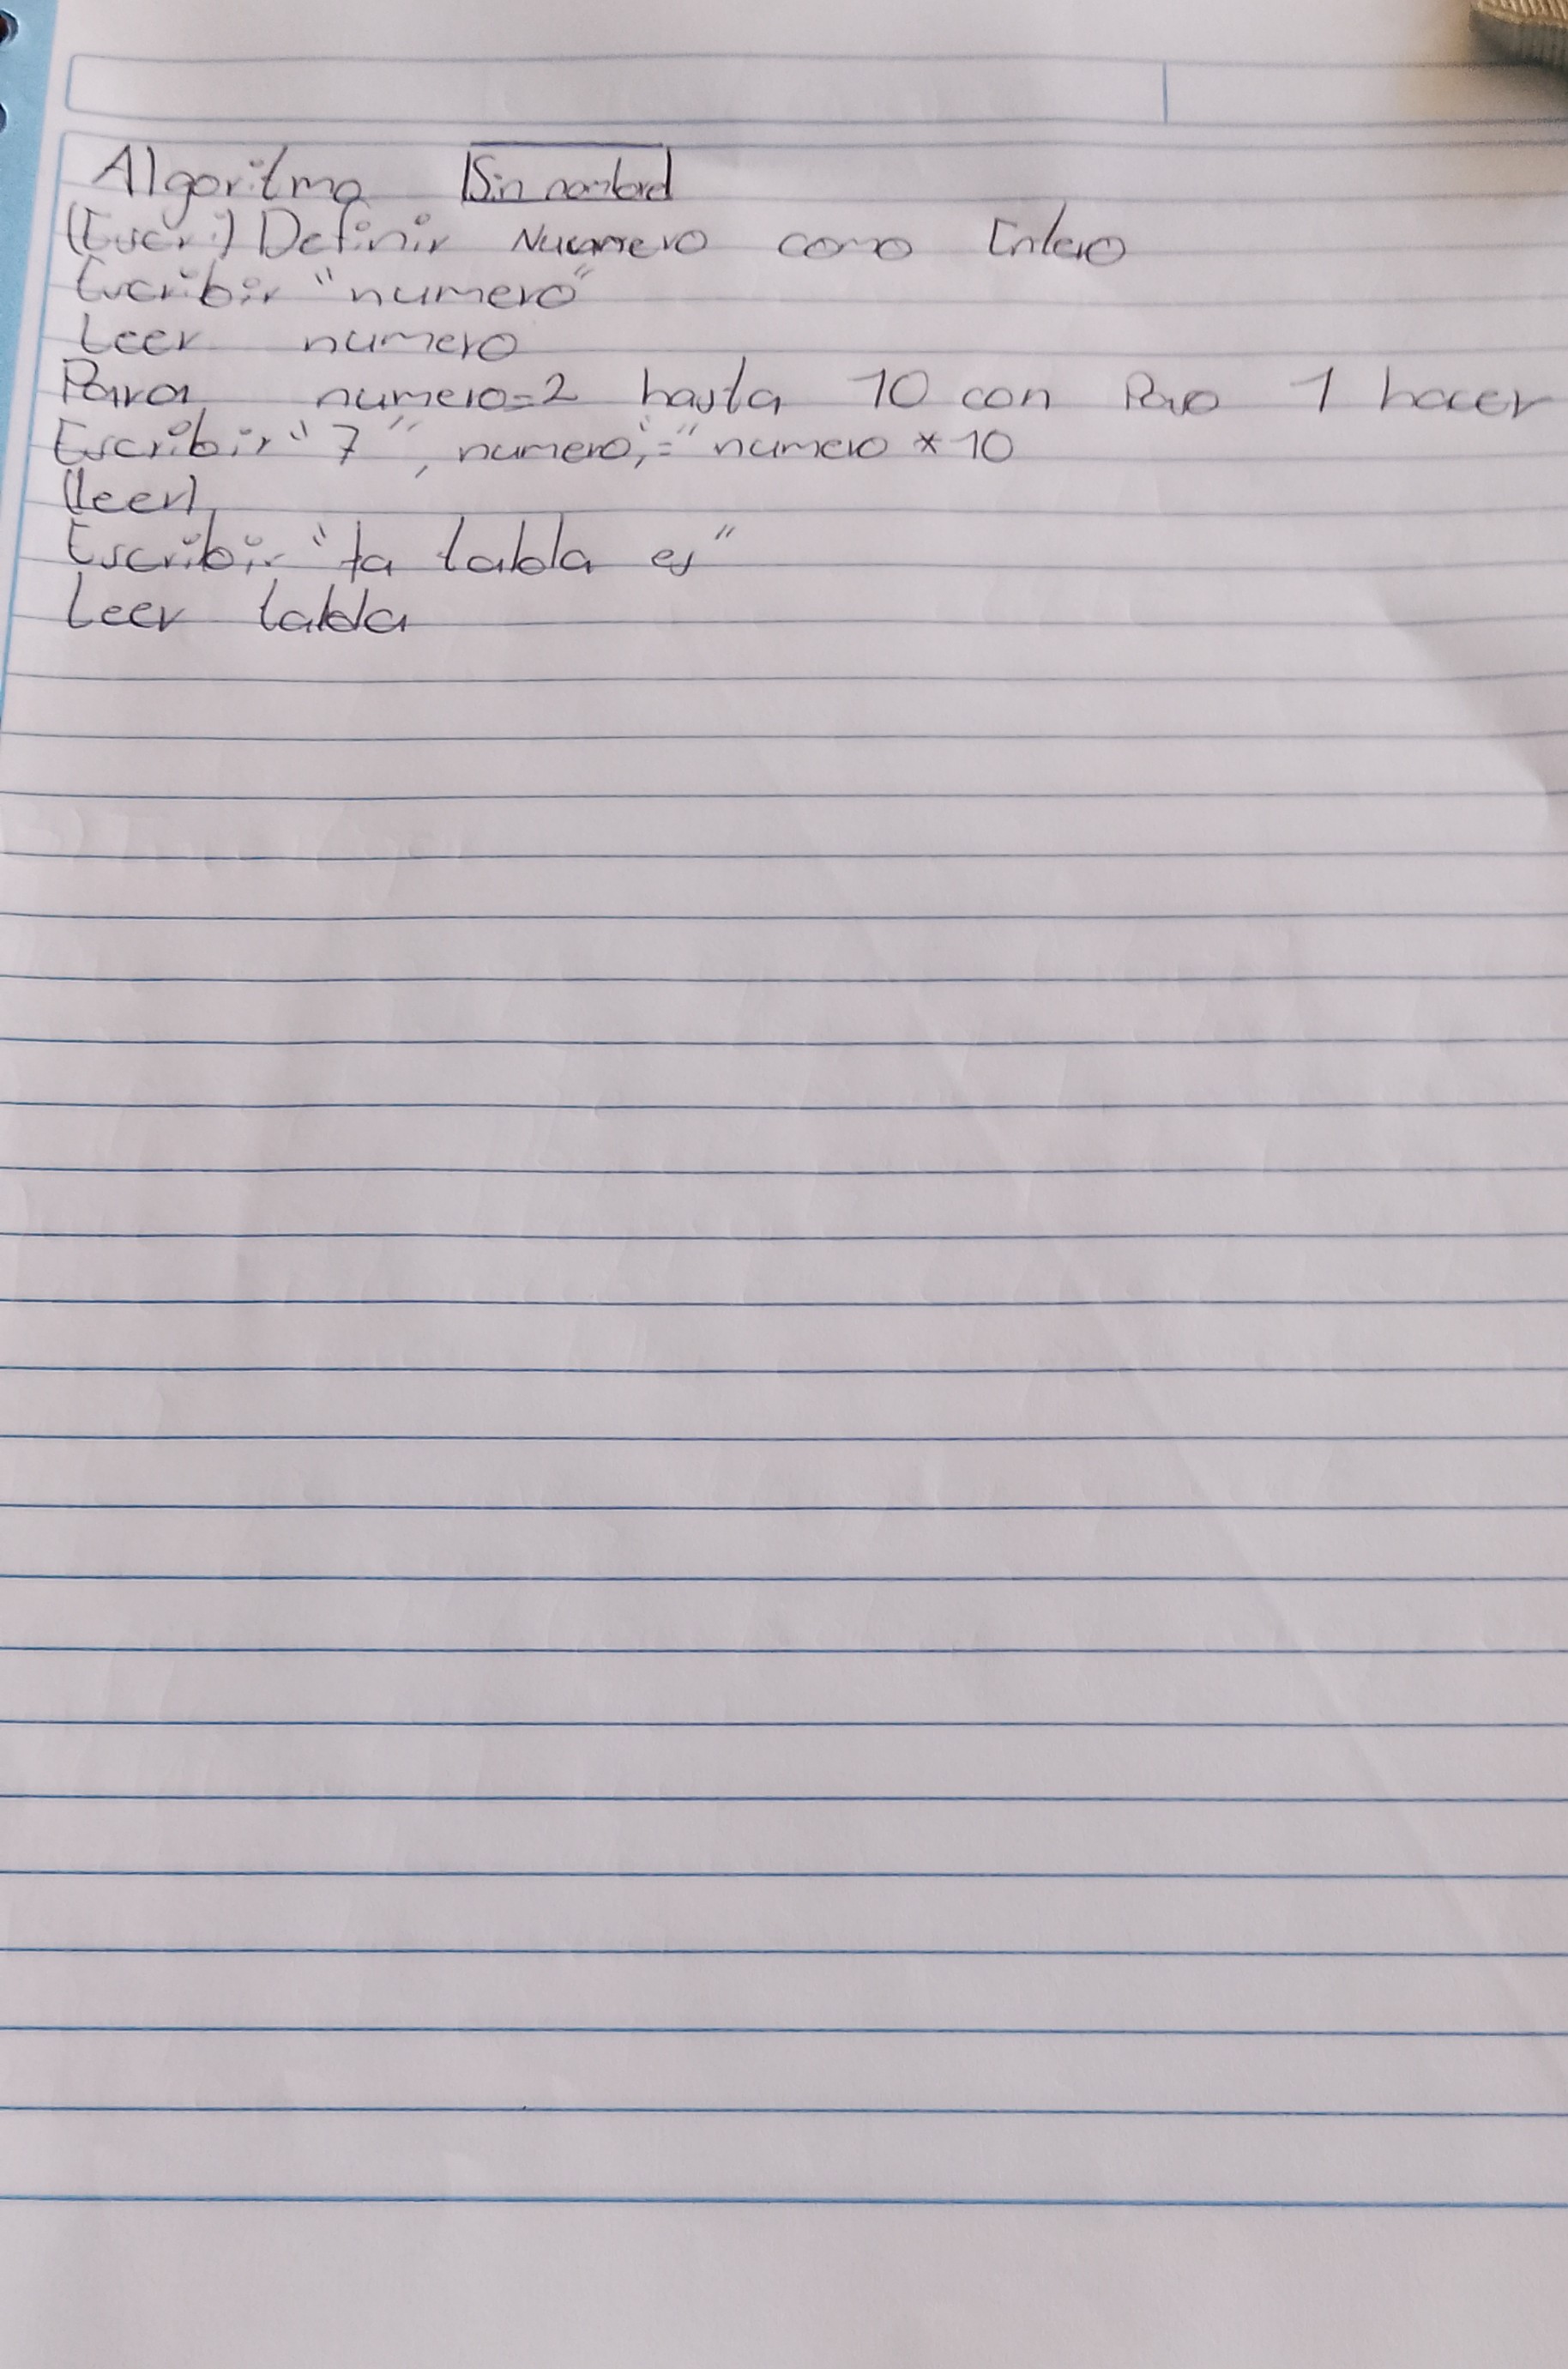 Algoritmo Sin nombre
(Escri) Definir Numero como Entero
Escribir "numero"
Leer numero
Para numero=2 hasta 10 con Paso 1 hacer
Escribir "7", numero, "=" numero * 10
(leer)
Escribir "la tabla es"
Leer tabla